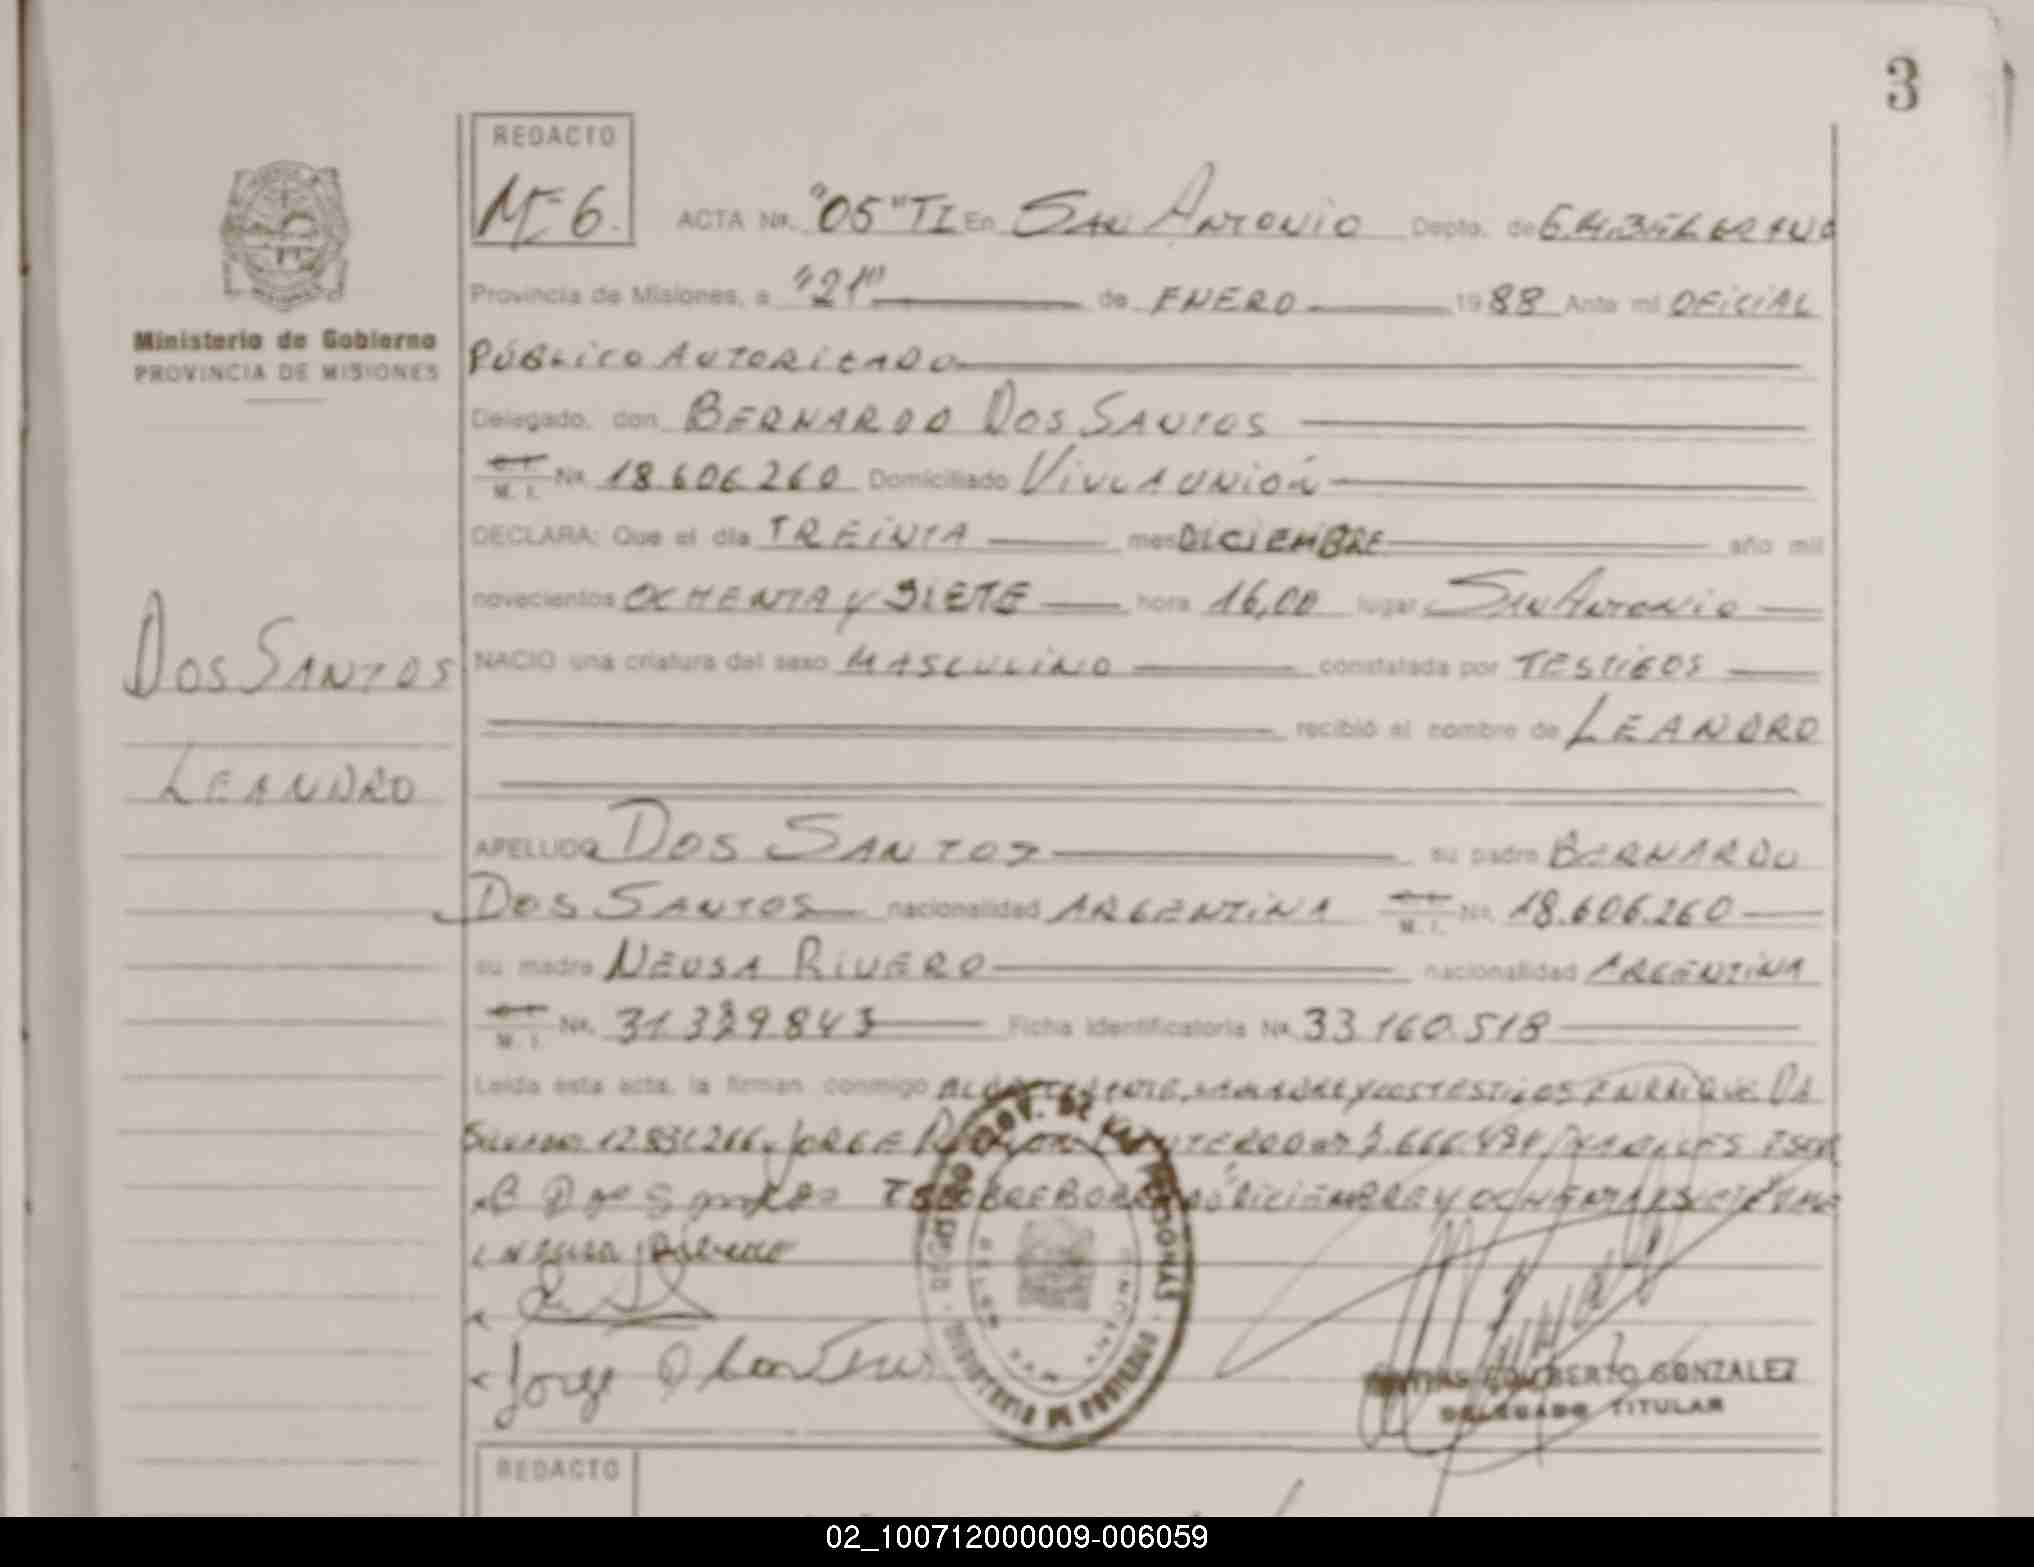 3
REDACTO
Mc 6.
ACTA Nº. "05" TI En SAN ANTONIO Depto. de G.M.BELGRANO
Provincia de Misiones, a "21" de ENERO 1988 Ante mi OFICIAL
Ministerio de Gobierno
PROVINCIA DE MISIONES
PÚBLICO AUTORIZADO
Delegado, don BERNARDO DOS SANTOS
M. I. Nº. 18.606.260 Domiciliado VILLA UNIÓN
DECLARA: Que el día TREINTA mes DICIEMBRE año mil
novecientos OCHENTA Y SIETE hora 16,00 lugar SAN ANTONIO
DOS SANTOS
NACIO una criatura del sexo MASCULINO constatada por TESTIGOS
recibió el nombre de LEANDRO
LEANDRO
APELLIDO DOS SANTOS su padre BERNARDO
DOS SANTOS nacionalidad ARGENTINA M. I. Nº. 18.606.260
su madre NEUSA RIVERO nacionalidad ARGENTINA
M. I. Nº. 31.339.843 Ficha Identificatoria Nº. 33.160.518
Leída esta acta, la firman conmigo LA MADRE Y LOS TESTIGOS ENRIQUE DA
SILVA 12.831.266 y JORGE
DICIEMBRE Y OCHENTA Y SIETE VALE
Neusa Rivero
Jorge
GONZALEZ
DELEGADO TITULAR
REDACTO
02_100712000009-006059